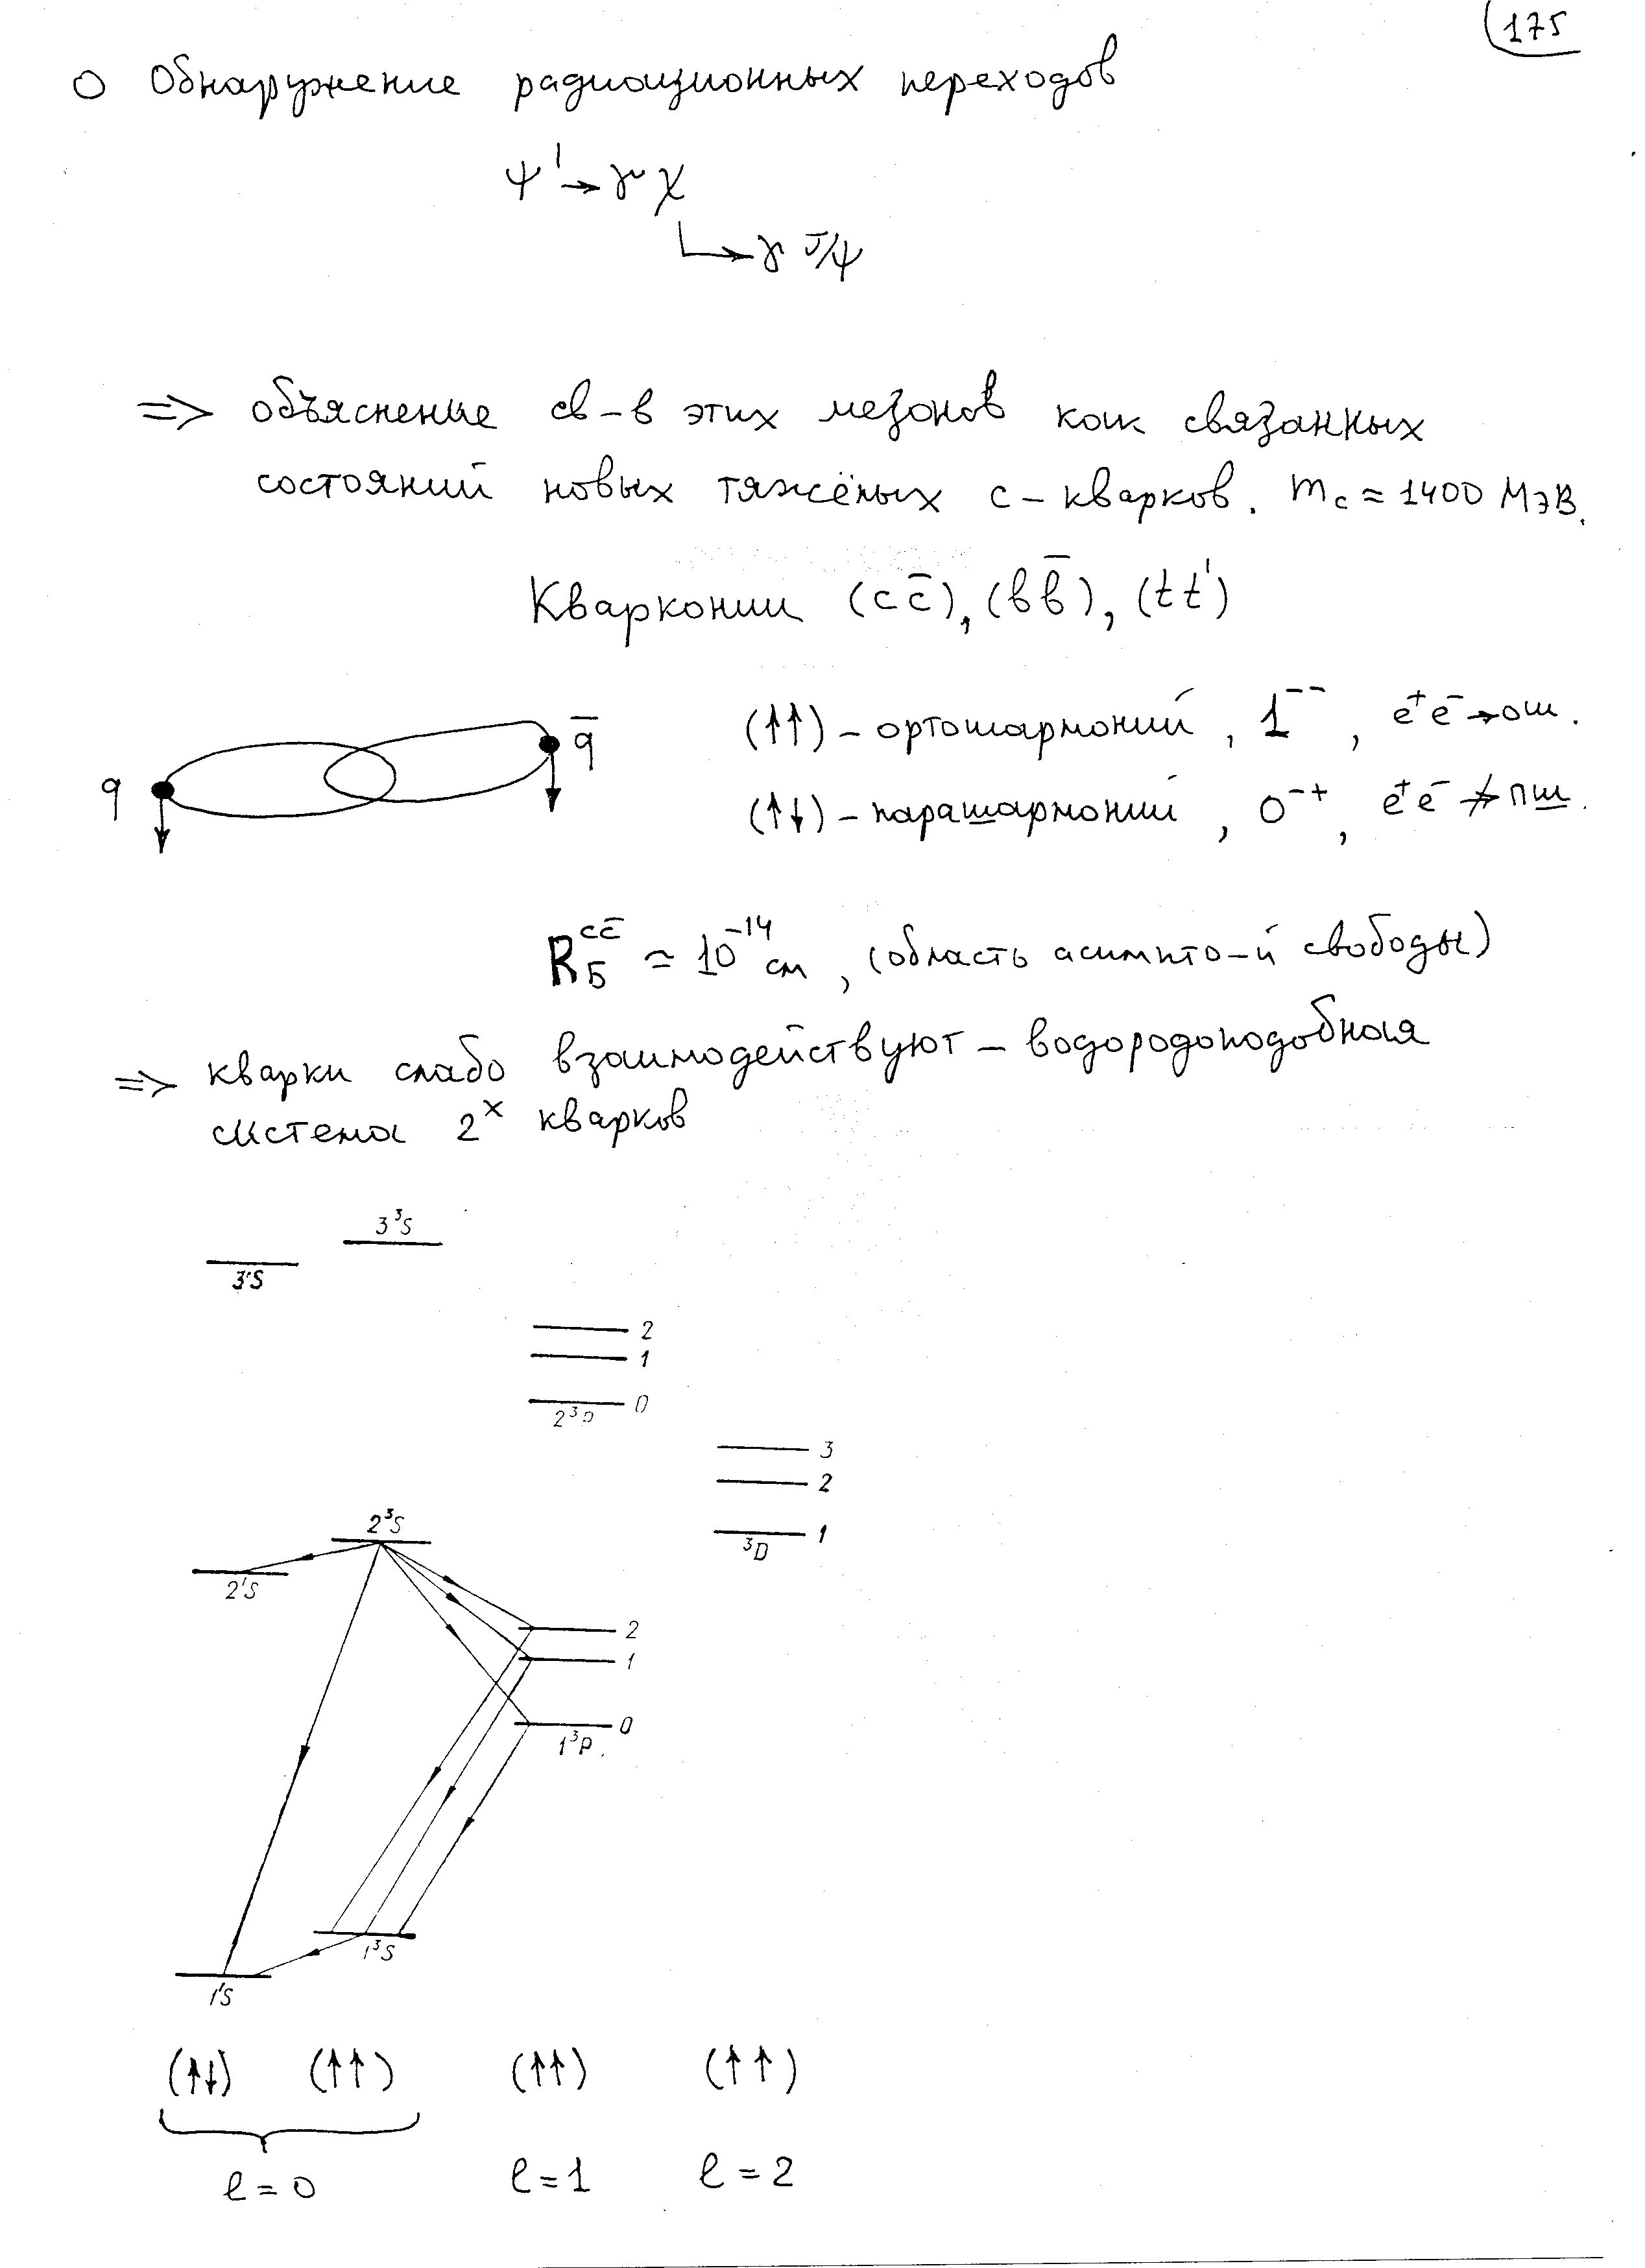 175
○ Обнаружение радиационных переходов
ψ' → γ χ
↳ γ J/ψ
=> объяснение св-в этих мезонов как связанных
состояний новых тяжёлых c-кварков. m_c ≈ 1400 МэВ.
Кварконии (cc̄), (bb̄), (tt')
q q̄
(↑↑) – ортошармоний, 1⁻⁻, e⁺e⁻ → ош.
(↑↓) – парашармоний, 0⁻⁺, e⁺e⁻ ↛ пш.
R_Б^{cc̄} ≃ 10⁻¹⁴ см, (область асимпто-й свободы)
=> кварки слабо взаимодействуют – водородоподобная
система 2ˣ кварков
3³S
3¹S
2
1
0
2³P
3
2
1
³D
2³S
2¹S
2
1
0
1³P
1³S
1¹S
(↑↓) (↑↑) (↑↑) (↑↑)
ℓ=0 ℓ=1 ℓ=2